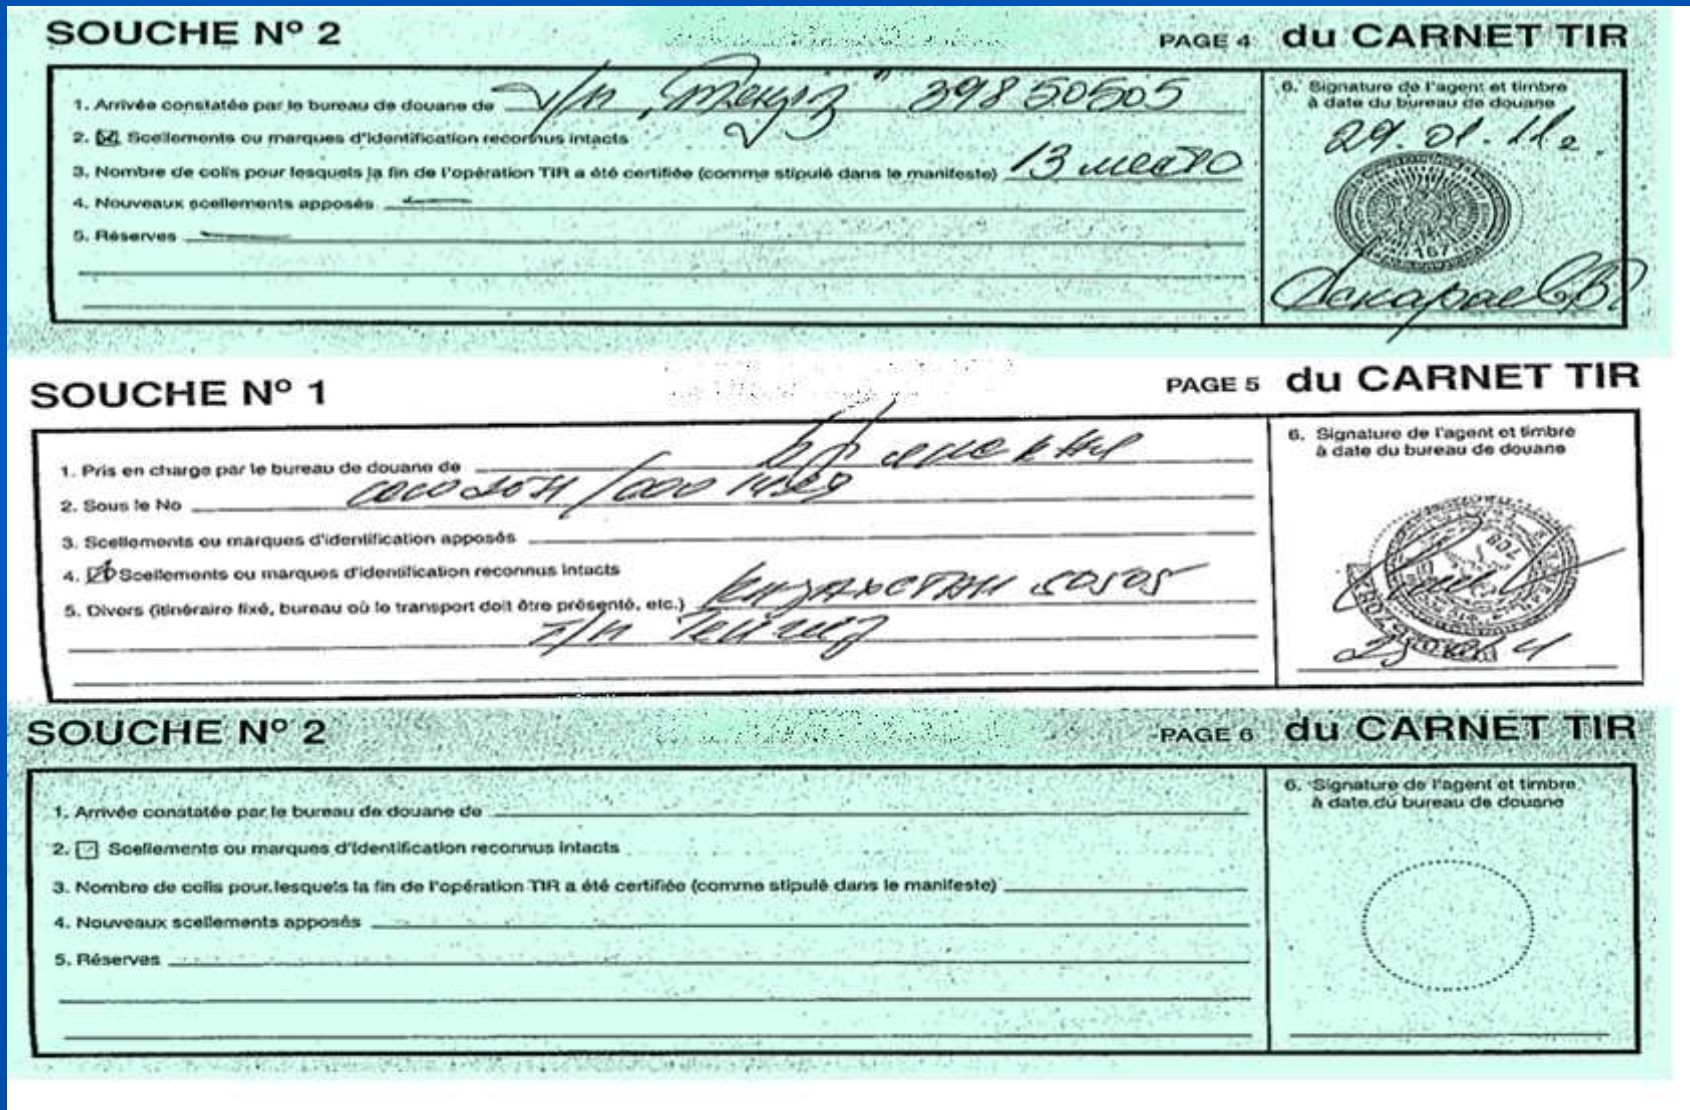 SOUCHE Nº 2 PAGE 4 du CARNET TIR
1. Arrivée constatée par le bureau de douane de т/п "Тенгиз" 398 50505
2. Scellements ou marques d'identification reconnus intacts
3. Nombre de colis pour lesquels la fin de l'opération TIR a été certifiée (comme stipulé dans le manifeste) 13 место
4. Nouveaux scellements apposés
5. Réserves
6. Signature de l'agent et timbre
à date du bureau de douane
29.01.11г.
167
SOUCHE Nº 1 PAGE 5 du CARNET TIR
1. Pris en charge par le bureau de douane de
2. Sous le No
3. Scellements ou marques d'identification apposés
4. Scellements ou marques d'identification reconnus intacts
5. Divers (itinéraire fixé, bureau où le transport doit être présenté, etc.) Казахстан 50505
т/п Тенгиз
6. Signature de l'agent et timbre
à date du bureau de douane
SOUCHE Nº 2 PAGE 6 du CARNET TIR
1. Arrivée constatée par le bureau de douane de
2. Scellements ou marques d'identification reconnus intacts
3. Nombre de colis pour lesquels la fin de l'opération TIR a été certifiée (comme stipulé dans le manifeste)
4. Nouveaux scellements apposés
5. Réserves
6. Signature de l'agent et timbre
à date du bureau de douane